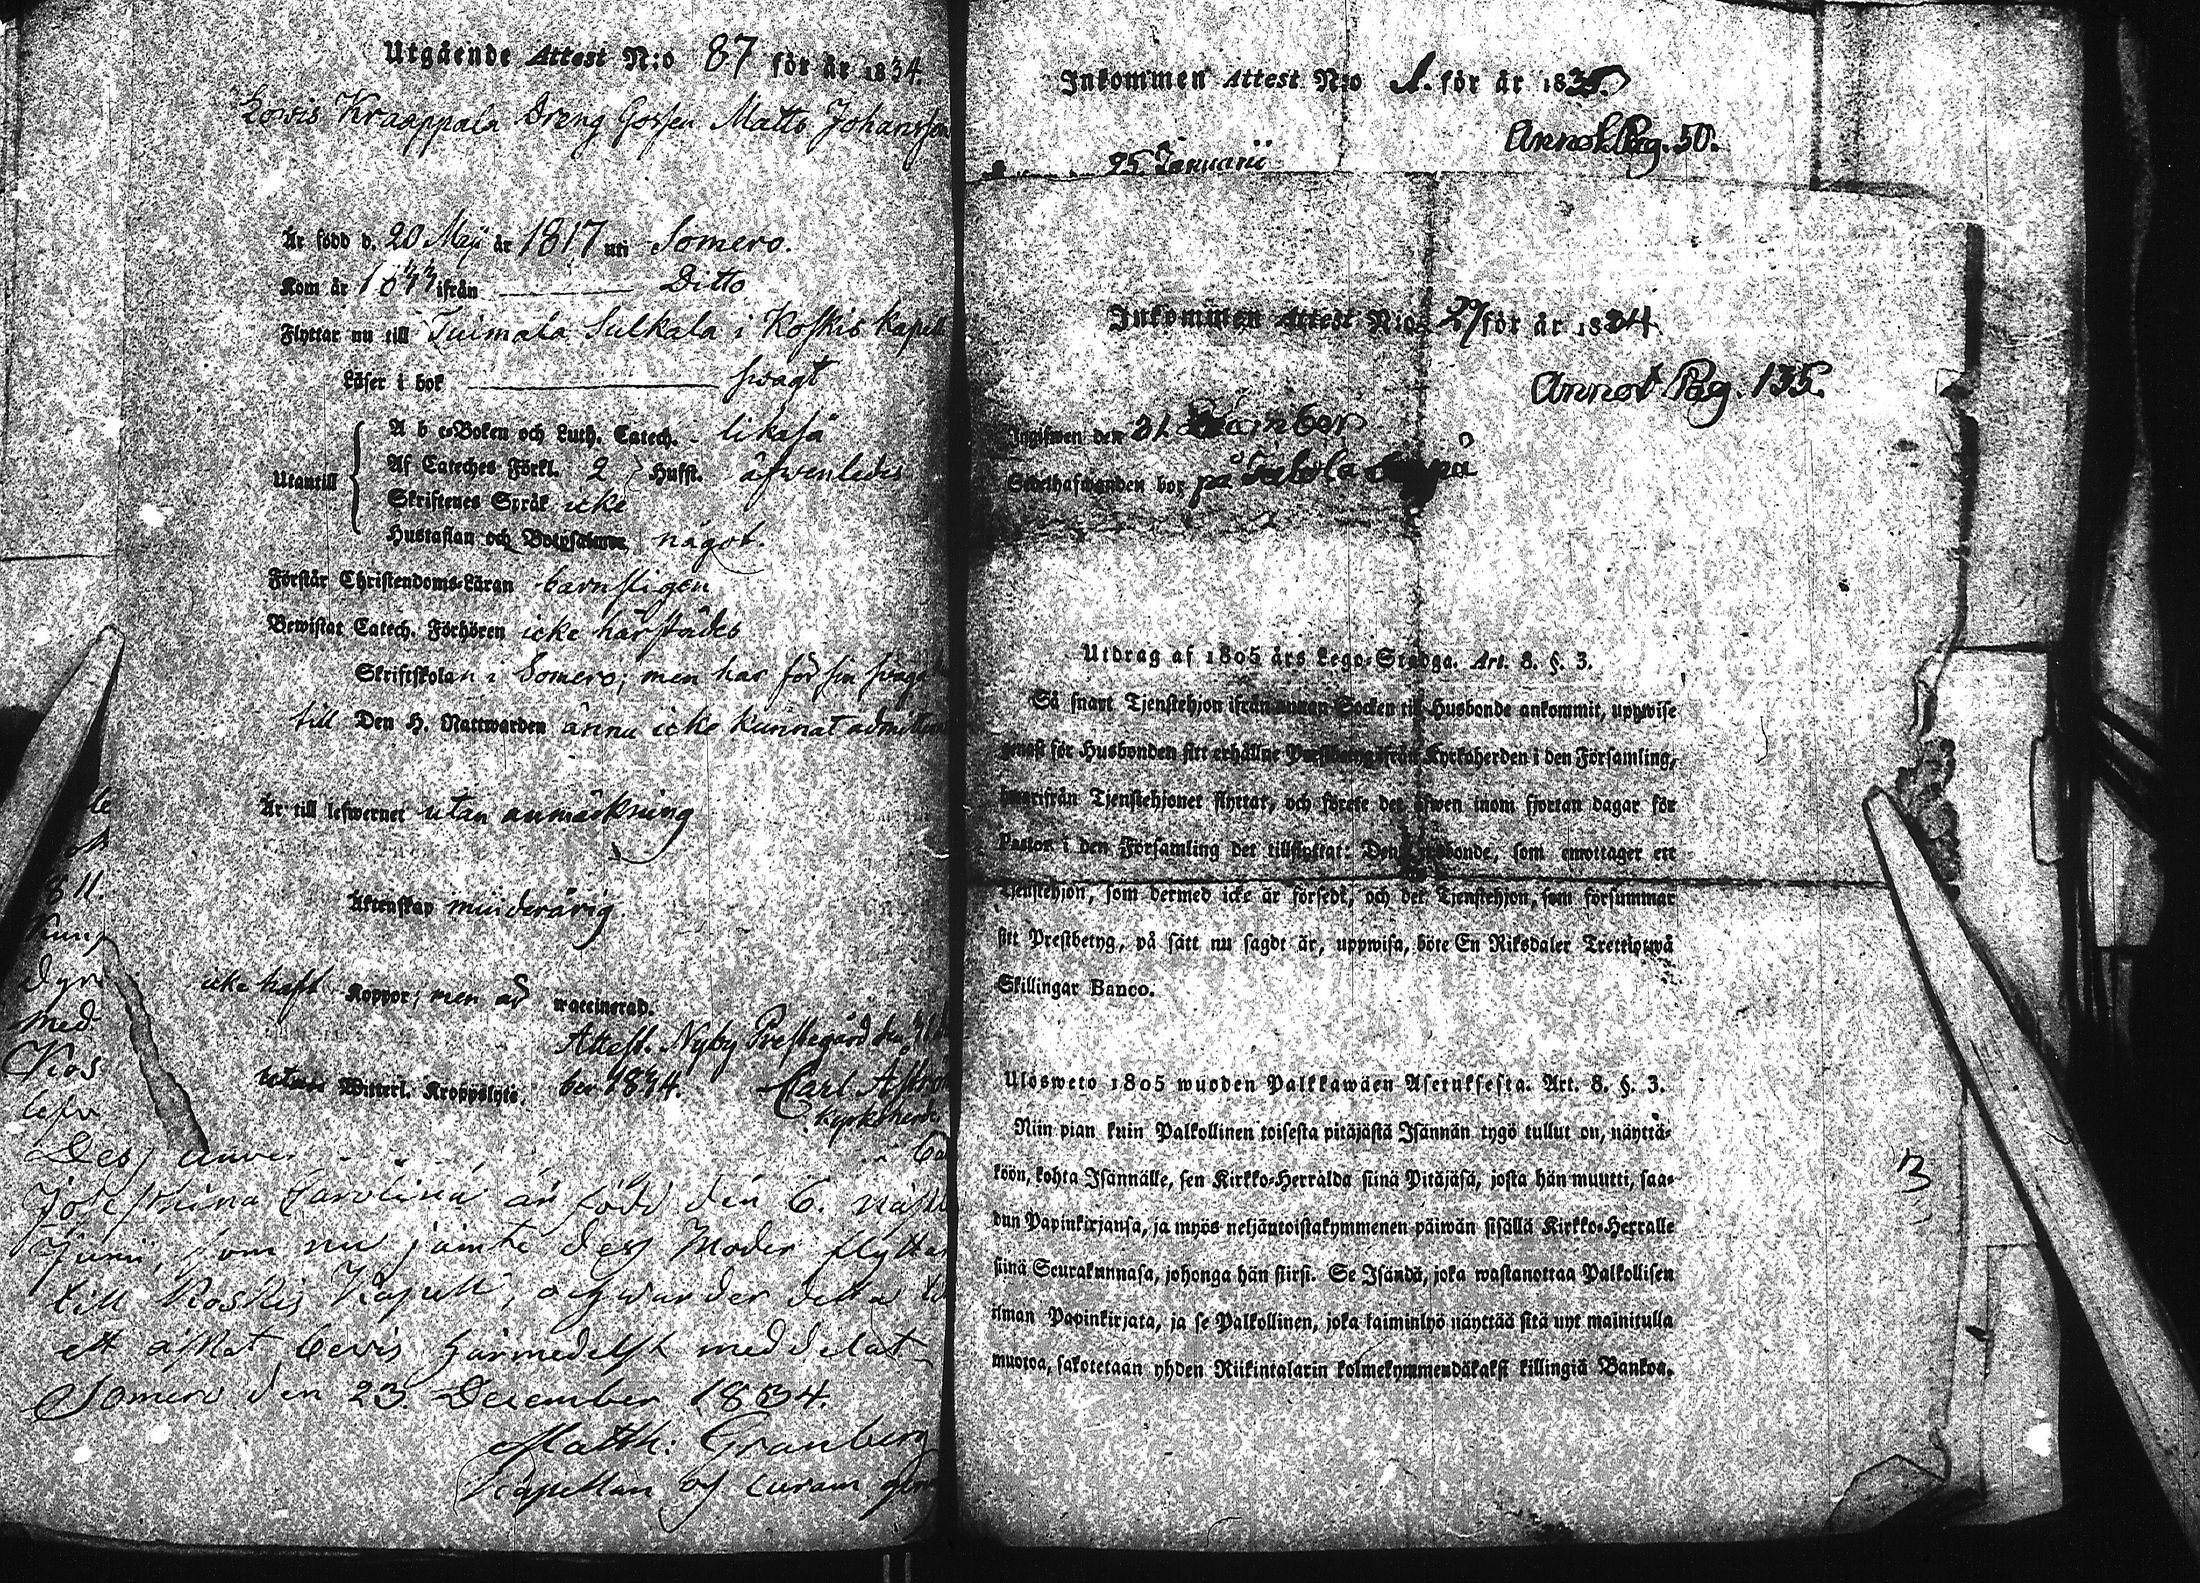 Utgående Attest N:o 87 för år 1834.
Lowis Kraappala Dreng Gossen Matts Johansson
Är född d. 20 Maji år 1817 uti Somero.
Kom år ifrån Ditto
Flyttar nu till Tuimala Sulkala i Koskis Kapell
Läser i bok swagt
Utantill
A b c-Boken och Luth. Catech. likaså
Af Cateches Förkl. 2 Hufst. äfwenledes
Skriftenes Språk icke
Hustaflan och Botpsalmer något.
Förstår Christendoms-Läran barnsligen
Bewistat Catech. Förhören icke härstädes
Skriftskolan i Somero; men har för sin swaga
till Den H. Nattwarden ännu icke kunnat admitteras
Är till lefwernet utan anmärkning
Äktenskap minderårig.
icke haft Koppor; men är waccinerad.
Attest. Nyby Prestegård den
utan Witterl. Kroppslyte. ber 1834. Carl
Kyrkoherde
le
811.
Kung
dyr
med
Kos
lefw
Dess
Josephina Carolina är född den 6.
Junii, som nu jämte dess Moder flyttar
till Koskis Kapell, och warder detta
ett äskat bewis härmedelst meddelat
Somero den 23 December 1834.
Matth: Granberg
Kapellan och curam
Inkommen Attest N:o 1. för år 1835.
Annot. Pag. 50.
25 Januarii
Inkommen Attest N:o 27 för år 1834
Annot Pag. 135.
Ingifwen den 31 December
Sedelhafwanden bor på
Utdrag af 1805 års Lego-Stadga. Art. 8. §. 3.
Så snart Tjenstehjon ifrån annan Socken till Husbonde ankommit, uppwise
genast för Husbonden sitt erhållne Prestbetyg ifrån Kyrkoherden i den Församling,
hwarifrån Tjenstehjonet flyttat, och förete det äfwen inom fjortan dagar för
Pastor i den Församling det tillflyttat: Den Husbonde, som emottager ett
Tjenstehjon, som dermed icke är försedt, och det Tjenstehjon, som försummar
sitt Prestbetyg, på sätt nu sagdt är, uppwisa, böte En Riksdaler Trettiotwå
Skillingar Banco.
Ulösweto 1805 wuoden Palkkawäen Asetuksesta. Art. 8. §. 3.
Niin pian kuin Palkollinen toisesta pitäjästä Isännän tygö tullut on, näyttä-
köön, kohta Isännälle, sen Kirkko-Herralda siinä Pitäjäsä, josta hän muutti, saa-
dun Papinkirjansa, ja myös neljäntoistakymmenen päiwän sisällä Kirkko-Herralle
siinä Seurakunnasa, johonga hän siirsi. Se Isändä, joka wastanottaa Palkollisen
ilman Papinkirjata, ja se Palkollinen, joka laiminlyö näyttää sitä nyt mainitulla
muotoa, sakotetaan yhden Riikintalarin kolmekymmendäkaksi killingiä Bankoa.